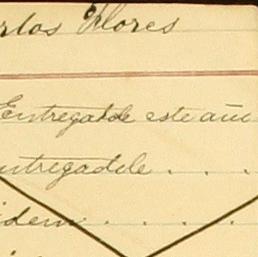 rlos Flores
Entregadole este añ
ntregadole . . . .
idem . . . . .